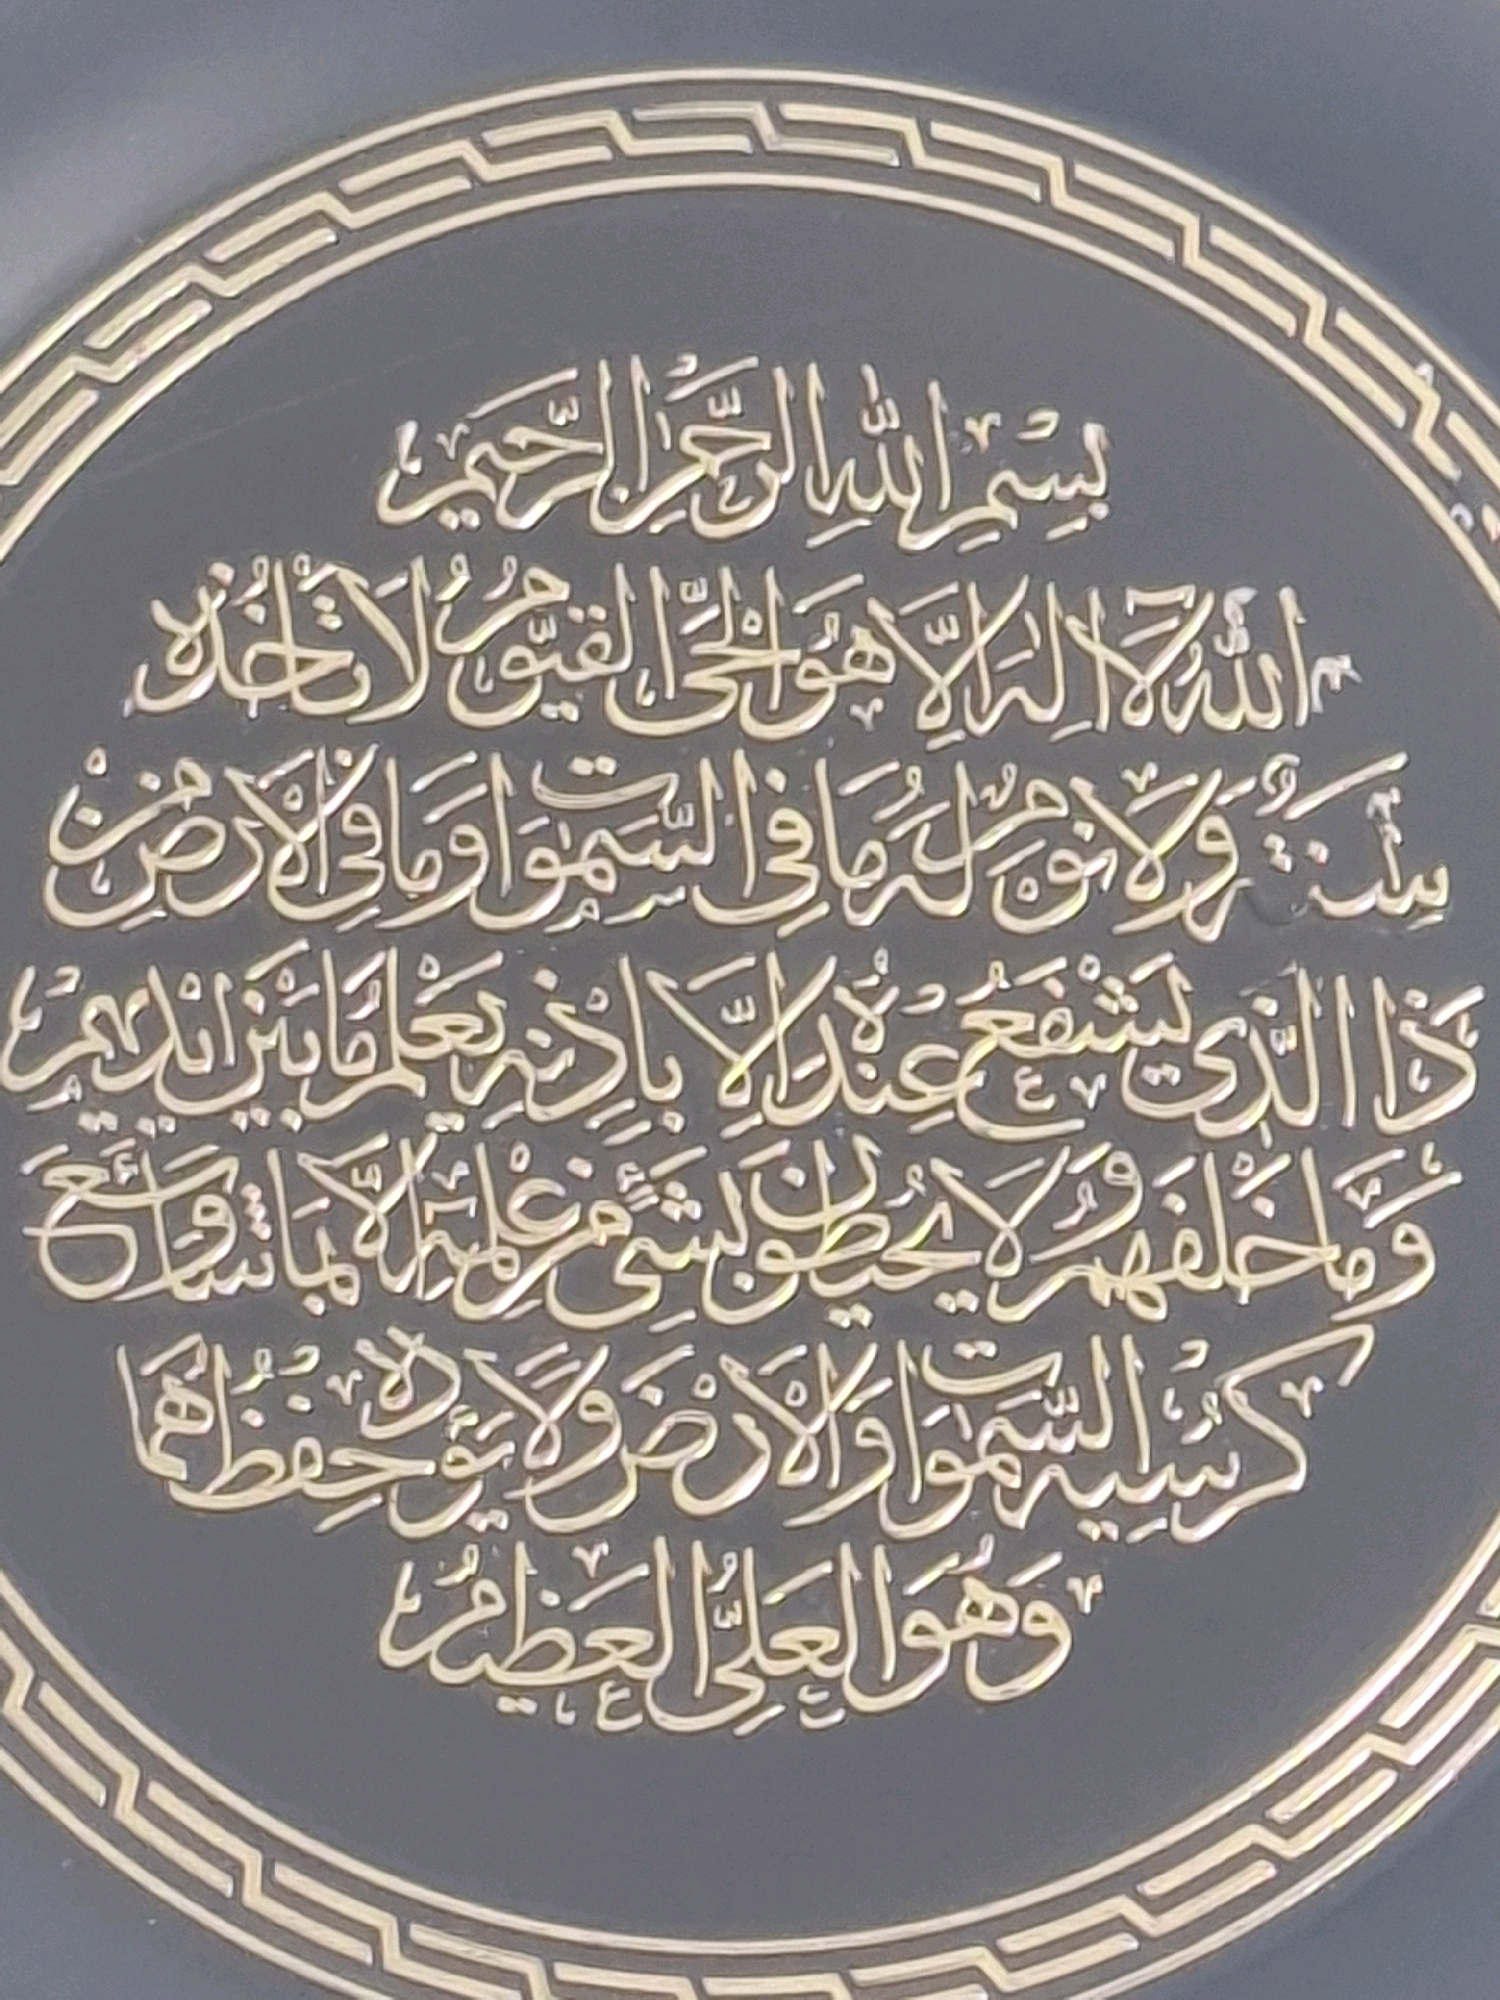 بِسْمِ اللهِ الرَّحْمٰنِ الرَّحِيمِ
اَللهُ لَا اِلٰهَ اِلَّا هُوَ الْحَىُّ الْقَيُّومُ لَا تَأْخُذُهُ
سِنَةٌ وَلَا نَوْمٌ لَهُ مَا فِى السَّمٰوَاتِ وَمَا فِى الْاَرْضِ مَنْ
ذَا الَّذِى يَشْفَعُ عِنْدَهُ اِلَّا بِاِذْنِهِ يَعْلَمُ مَا بَيْنَ اَيْدِيهِمْ
وَمَا خَلْفَهُمْ وَلَا يُحِيطُونَ بِشَىْءٍ مِنْ عِلْمِهِ اِلَّا بِمَا شَاءَ وَسِعَ
كُرْسِيُّهُ السَّمٰوَاتِ وَالْاَرْضَ وَلَا يَؤُدُهُ حِفْظُهُمَا
وَهُوَ الْعَلِىُّ الْعَظِيمُ